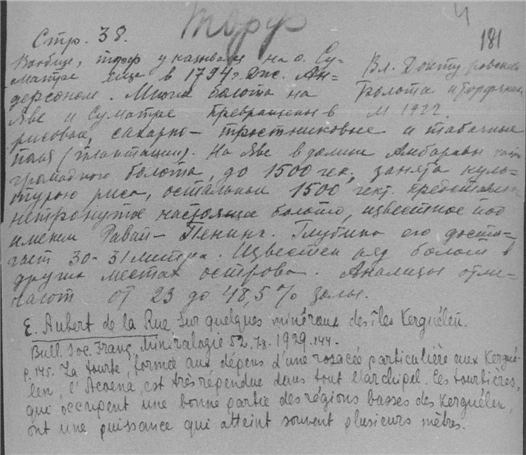 Торф
Ч
181
Стр. 38.
Вл. Доктуровский
Болота и торфяники
М. 1922.
Вообще, торф указывали на о. Су-
матре еще в 1794 г. Дж. Ан-
дерсоном. Многие болота на
Яве и Суматре превращены в
рисовые сахарно-тростниковые и табачные
поля (плантации). На Яве в долине Амбаравы
громадного болота, до 1500 гек, занята куль-
турою риса, остальные 1500 гект. представляют
нетронутое настоящее болото, известное под
именем Равай-Пенинг. Глубина его дости-
гает 30-31 метра. Известен ряд болот в
других местах острова. Анализы отме-
чают от 23 до 48,5% золы.
E. Aubert de la Rue Sur quelques minéraux des îles Kerguélen.
Bull. Soc. Franç. Minéralogie 52, 1929. 144.
p. 145. La tourbe, formée aux dépens d'une rosacée particulière aux Kergué-
len, l'Acaena, est très répendue dans tout l'archipel. Ces tourbières,
qui occupent une bonne partie des régions basses des Kerguelen,
ont une puissance qui atteint souvent plusieurs mètres.